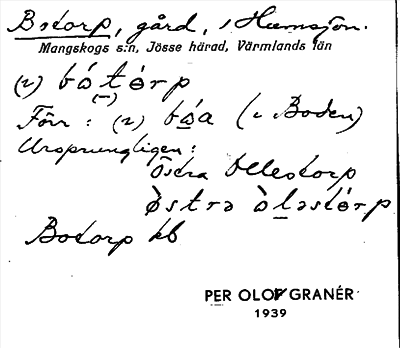 Botorp, gård, i Humsjön.
Mangskogs s:n, Jösse härad, Värmlands län
(2) bótórp
(–)
Förr : (2) bóa (i Boden)
Ursprungligen :
Östra Ollestorp
östrə òləstórp
Botorp kb
PER OLOF GRANÉR
1939